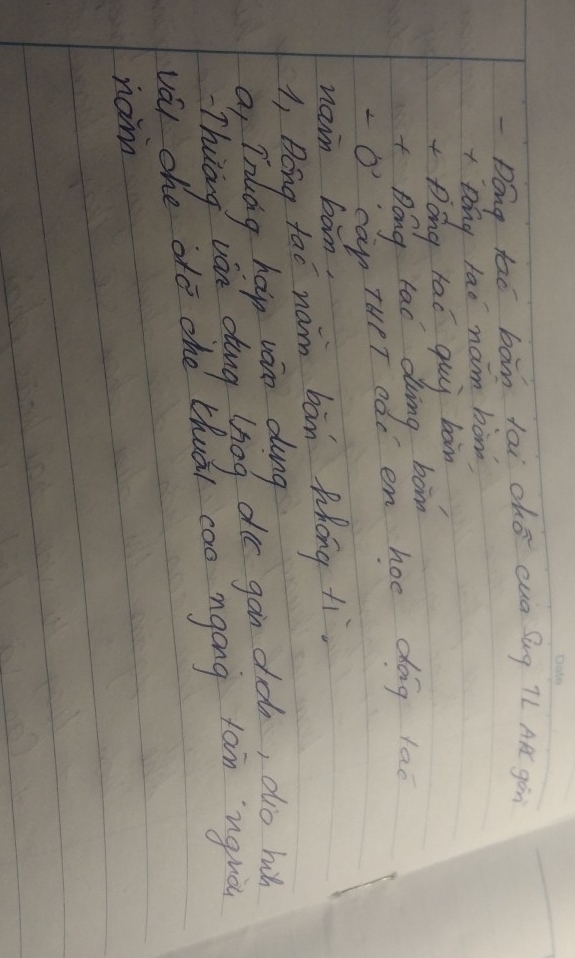 - Động tác bắn tại chỗ của súng TL AK gồm
+ Động tác nằm bắn,
+ Động tác quỳ bắn
+ Động tác đứng bắn
- Ở cấp THPT các em học động tác
nằm bắn,
1, Động tác nằm bắn không tì.
a, Trường hợp vận dụng
- Thường vận dụng trog đk gần địch, địa hình
vật che đỡ che khuất cao ngang tầm người
nằm
Date